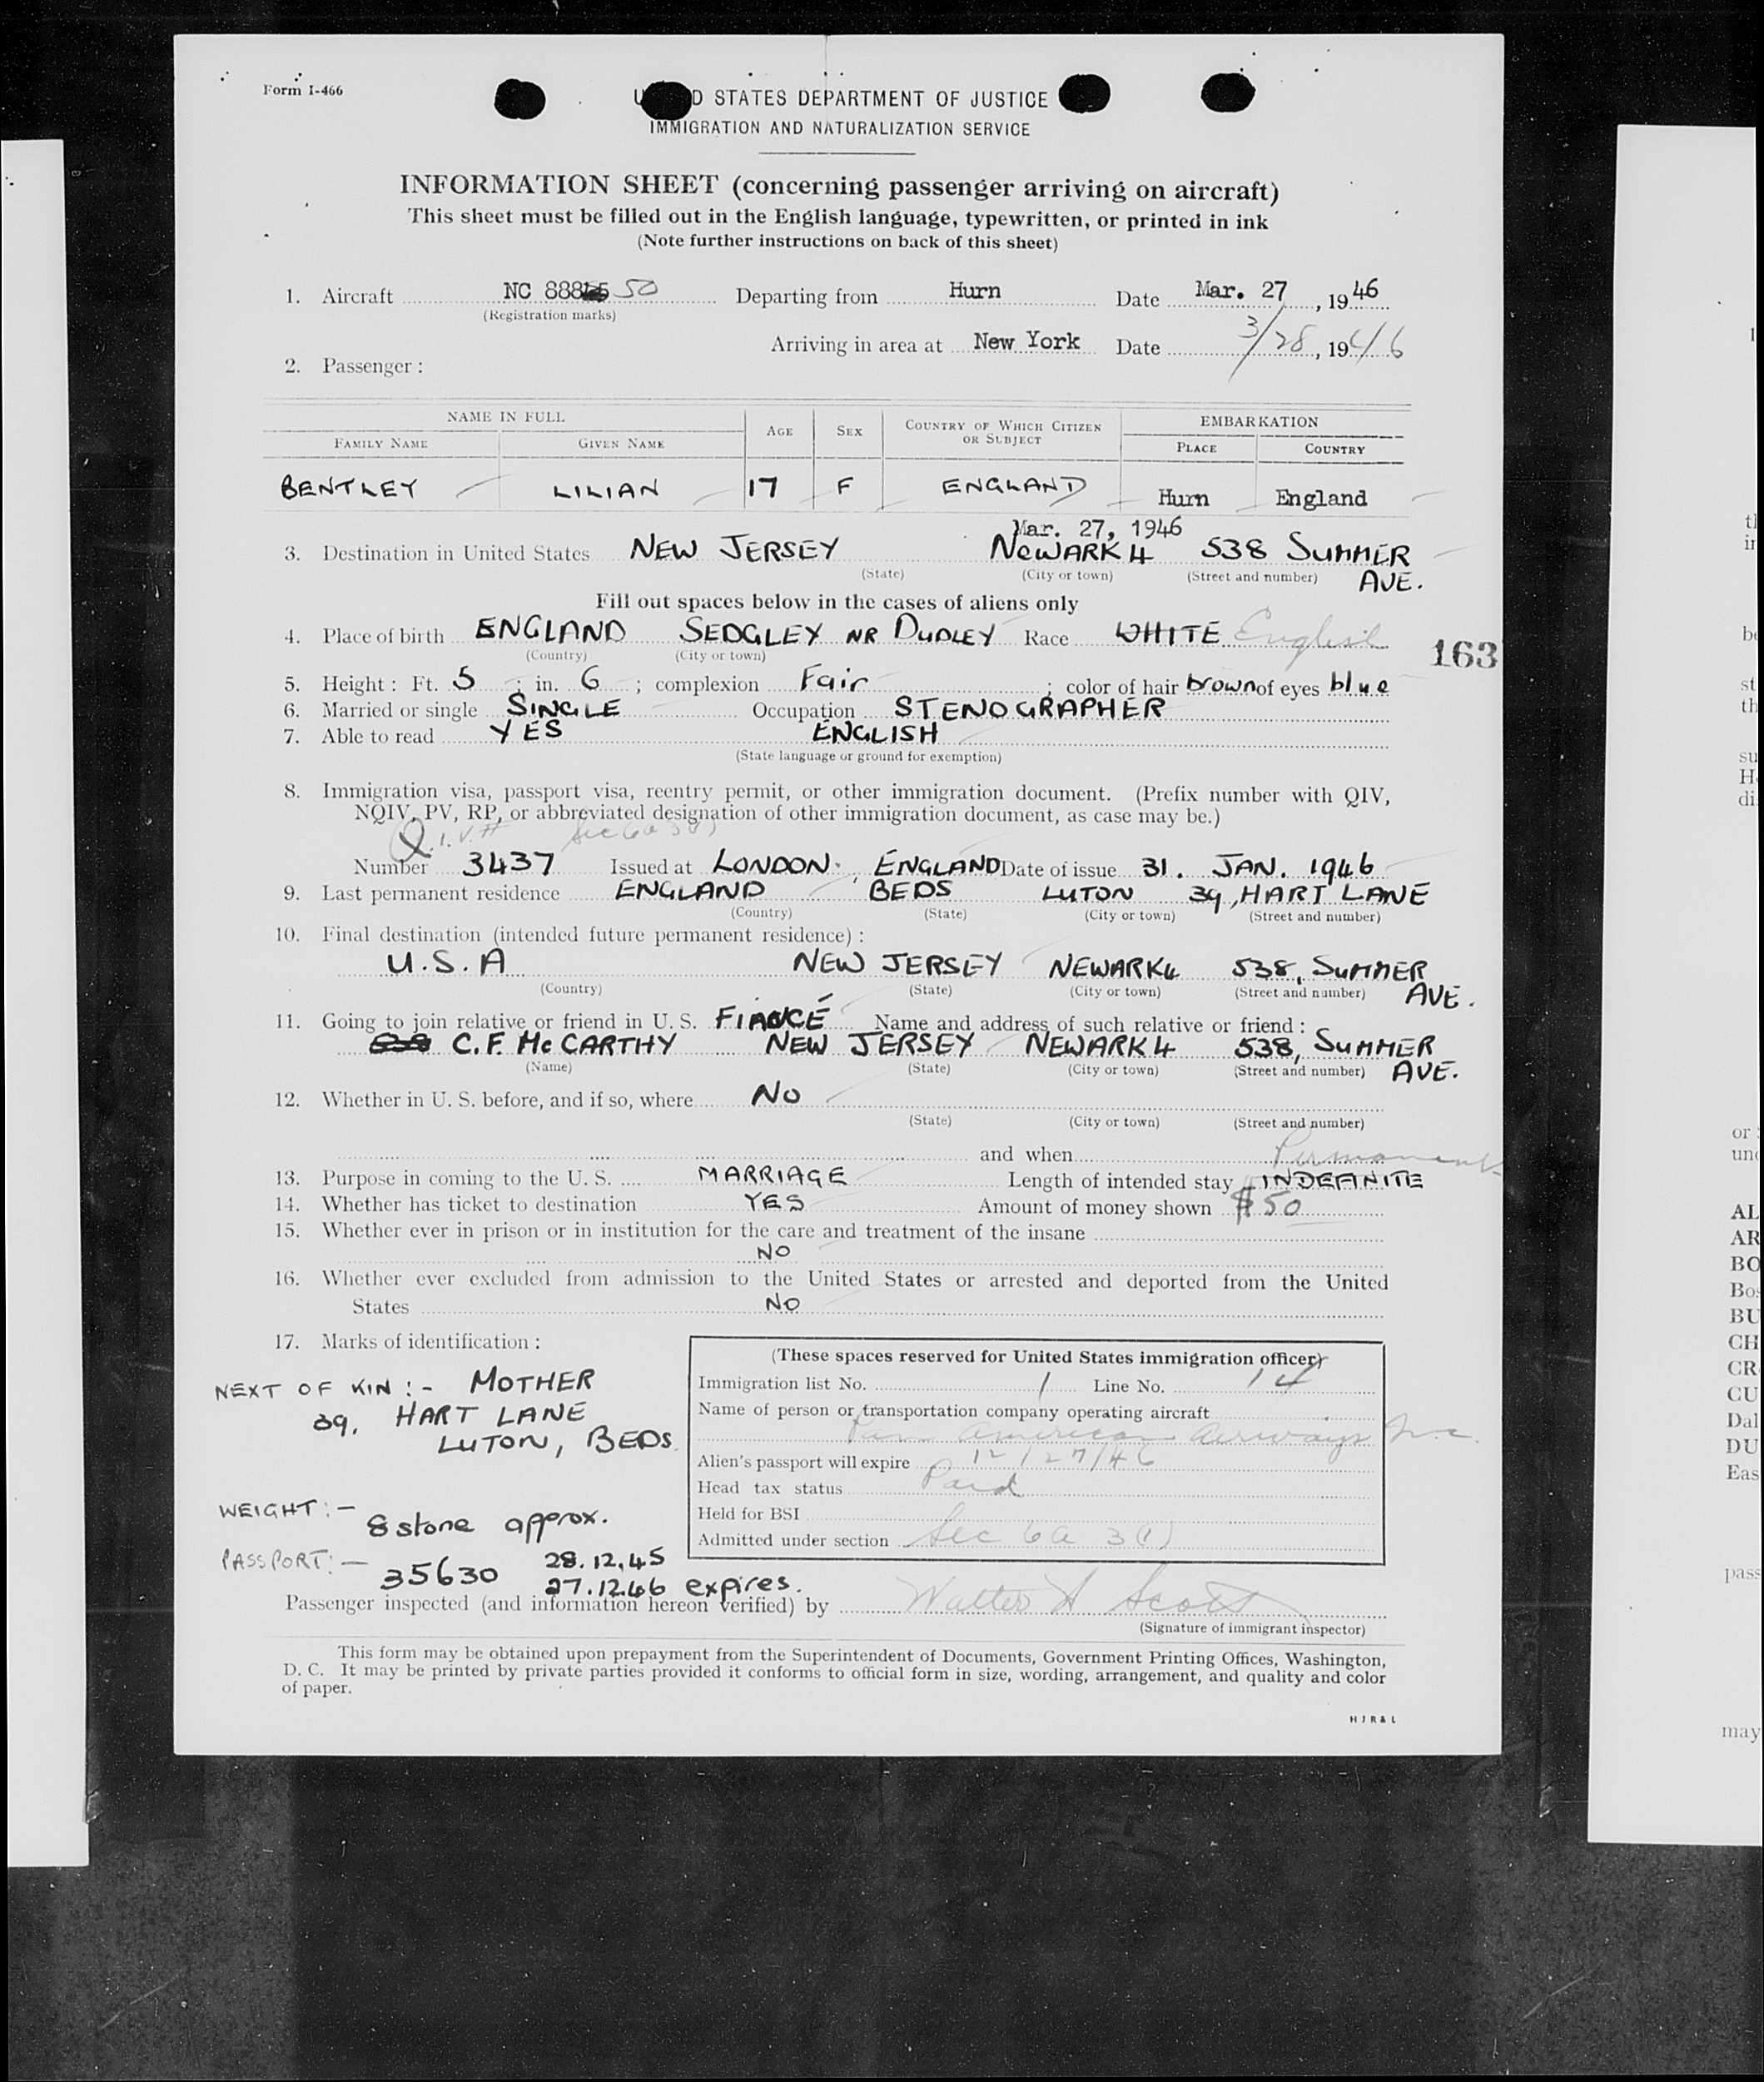 Form I-466
D STATES DEPARTMENT OF JUSTICE
IMMIGRATION AND NATURALIZATION SERVICE
INFORMATION SHEET (concerning passenger arriving on aircraft)
This sheet must be filled out in the English language, typewritten, or printed in ink
(Note further instructions on back of this sheet)
1. Aircraft NC 888 50 Departing from Hurn Date Mar. 27, 1946
(Registration marks)
Arriving in area at New York Date 3/28, 1946
2. Passenger:
NAME IN FULL AGE SEX COUNTRY OF WHICH CITIZEN OR SUBJECT EMBARKATION
FAMILY NAME GIVEN NAME PLACE COUNTRY
BENTLEY LILIAN 17 F ENGLAND Hurn England
Mar. 27, 1946
3. Destination in United States NEW JERSEY NEWARK 4 538 SUMMER
(State) (City or town) (Street and number) AVE.
Fill out spaces below in the cases of aliens only
4. Place of birth ENGLAND SEDGLEY NR DUDLEY Race WHITE English
(Country) (City or town)
163
5. Height: Ft. 5; in. 6; complexion Fair; color of hair brown of eyes blue
6. Married or single SINGLE Occupation STENOGRAPHER
7. Able to read YES ENGLISH
(State language or ground for exemption)
8. Immigration visa, passport visa, reentry permit, or other immigration document. (Prefix number with QIV,
NQIV, PV, RP, or abbreviated designation of other immigration document, as case may be.)
Q.I.V.# Sec 6a 3(1)
Number 3437 Issued at LONDON, ENGLAND Date of issue 31. JAN. 1946
9. Last permanent residence ENGLAND BEDS LUTON 39, HART LANE
(Country) (State) (City or town) (Street and number)
10. Final destination (intended future permanent residence):
U.S.A NEW JERSEY NEWARK 4 538, SUMMER
(Country) (State) (City or town) (Street and number) AVE.
11. Going to join relative or friend in U. S. FIANCÉ Name and address of such relative or friend:
C.F. McCARTHY NEW JERSEY NEWARK 4 538, SUMMER
(Name) (State) (City or town) (Street and number) AVE.
12. Whether in U. S. before, and if so, where NO
(State) (City or town) (Street and number)
and when Permanent
13. Purpose in coming to the U. S. MARRIAGE Length of intended stay INDEFINITE
14. Whether has ticket to destination YES Amount of money shown $50
15. Whether ever in prison or in institution for the care and treatment of the insane
NO
16. Whether ever excluded from admission to the United States or arrested and deported from the United
States NO
17. Marks of identification:
NEXT OF KIN:- MOTHER
39, HART LANE
LUTON, BEDS.
WEIGHT:- 8 stone approx.
PASSPORT:- 35630 28.12.45
27.12.46 expires.
(These spaces reserved for United States immigration officer)
Immigration list No. 1 Line No. 14
Name of person or transportation company operating aircraft
Pan American Airways Inc.
Alien's passport will expire 12/27/46
Head tax status Paid
Held for BSI
Admitted under section Sec 6a 3(1)
Passenger inspected (and information hereon verified) by Walter A Scott
(Signature of immigrant inspector)
This form may be obtained upon prepayment from the Superintendent of Documents, Government Printing Offices, Washington,
D. C. It may be printed by private parties provided it conforms to official form in size, wording, arrangement, and quality and color
of paper.
HJR&L
AL
AR
BO
Bos
BU
CH
CR
CU
Dal
DU
Eas
pass
may